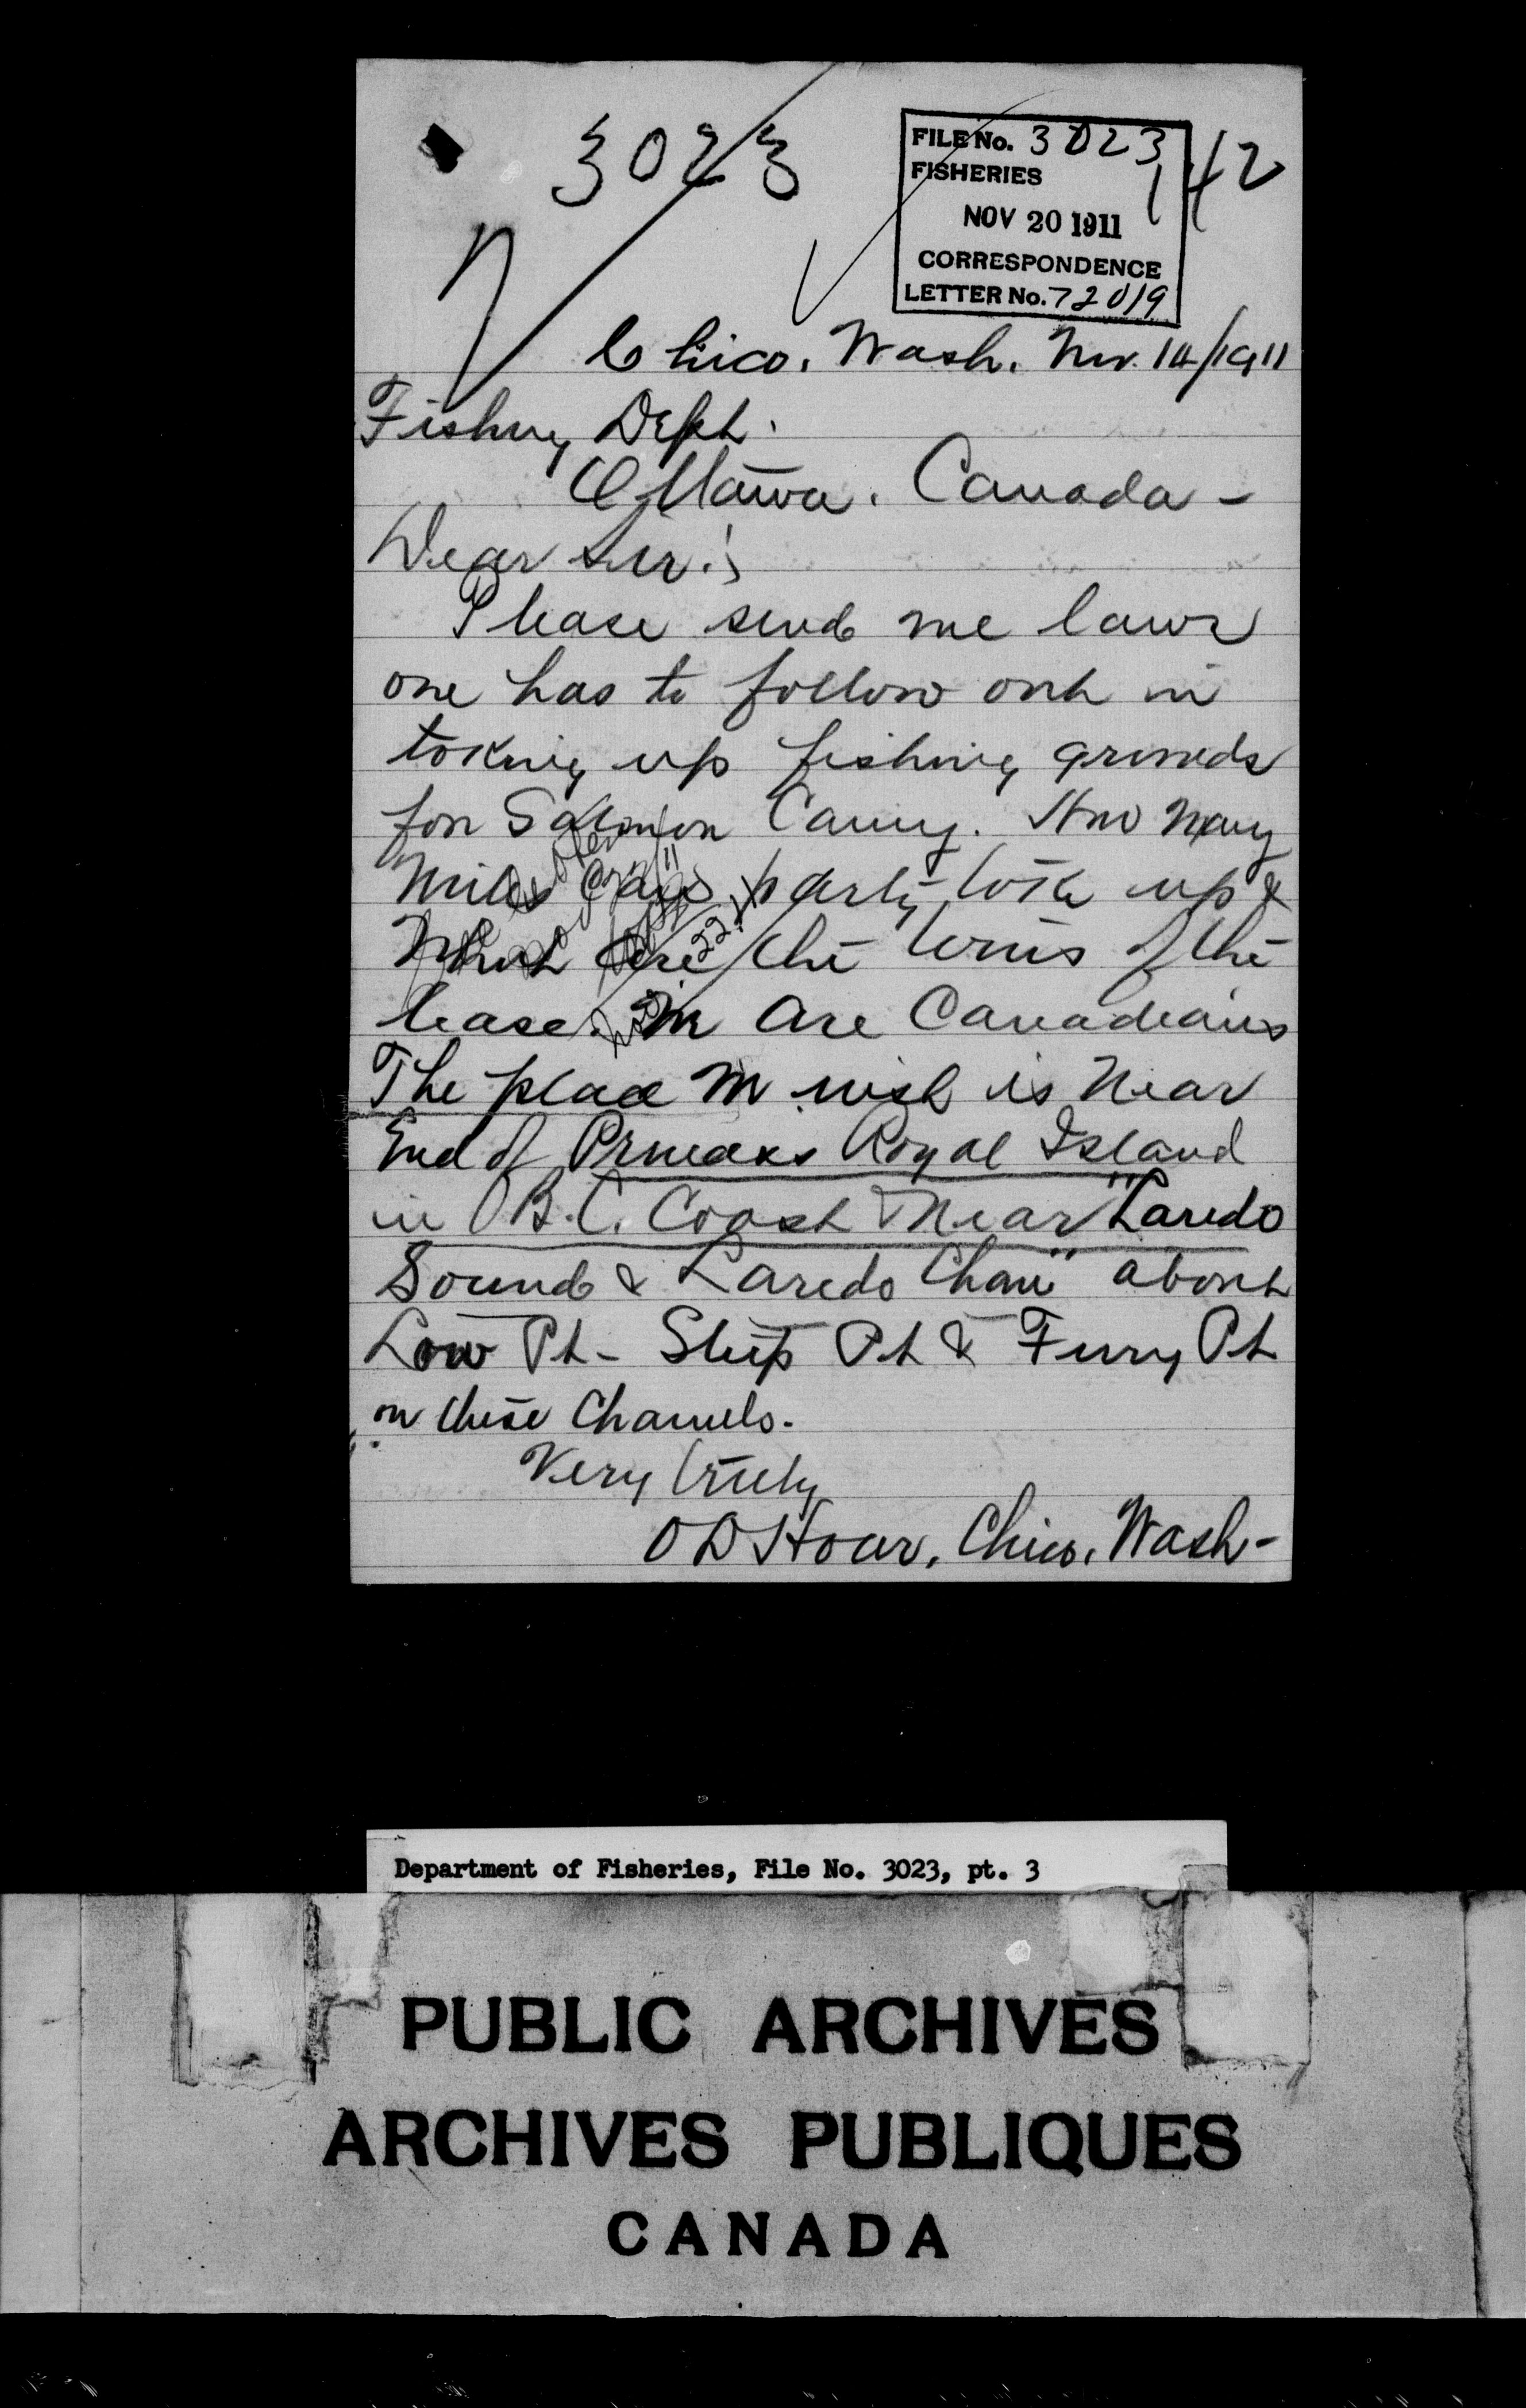 3023
FILE No. 3023
142
FISHERIES
NOV 20 1911
CORRESPONDENCE
LETTER No. 72019
Chico. Wash. Nov. 14/1911
Fishing Dept.
Ottawa. Canada -
Dear Sir!
Please send me laws
one has to follow out in
taking up fishing grounds
for Salmon Canny. How many
miles can party take up &
What are the terms of the
lease. are Canadians
The place wish is Near
End of Princess Royal Island
in B.C. Coast & Near "Laredo
Sound & Laredo Chan" about
Low Pt - Steep Pt & Fury Pt
on these Channels.
Very truly
O D Hoar, Chico, Wash-
Department of Fisheries, File No. 3023, pt. 3
PUBLIC ARCHIVES
ARCHIVES PUBLIQUES
CANADA